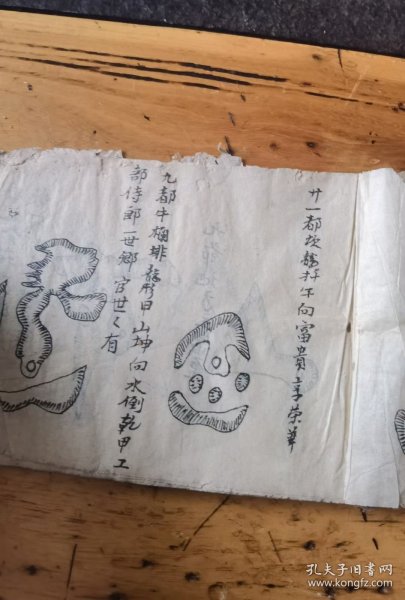 廿一都坟龍扦午向富貴享榮華
九都牛欄排龍形日山坤向水倒乾甲工
部侍郎一世鄉官世々有
孔夫子旧书网
www.kongfz.com